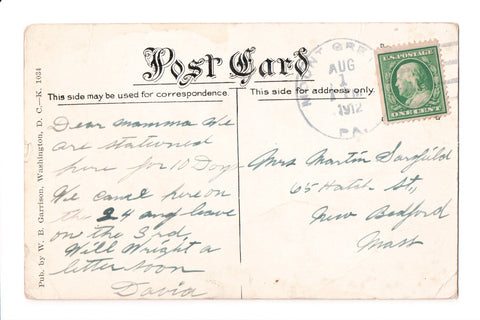 Post Card
This side may be used for correspondence.
This side for address only.
Pub. by W. B. Garrison, Washington, D. C.—K. 1034
MOUNT GRE
AUG
1
1912
PA.
U.S. POSTAGE
ONE CENT
Dear mamma We
are stationed
here for 10 Days
We came here on
the 24 and leave
on the 3rd
Will Wright a
letter soon
David
Mrs Martin
65 Hatch St,
New Bedford
Mass